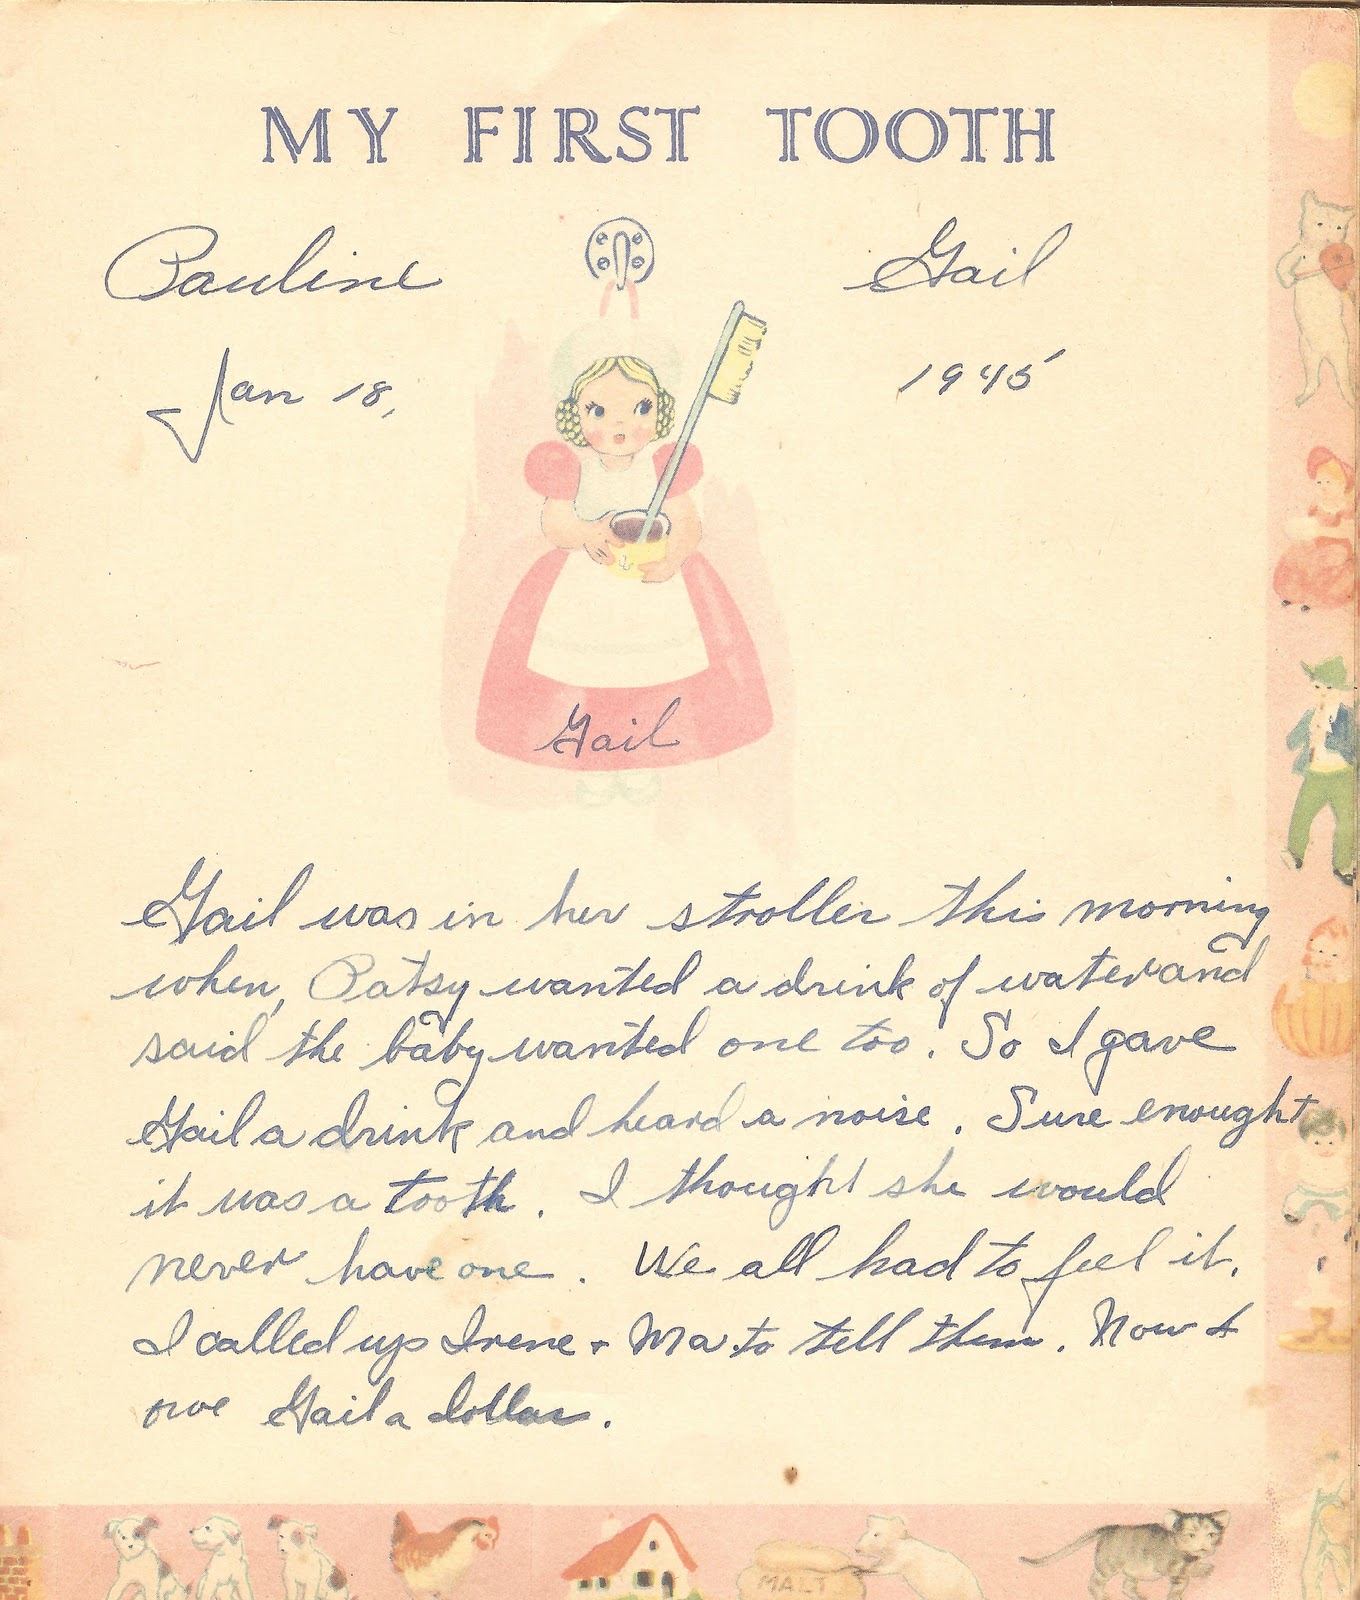 MY FIRST TOOTH
Pauline Gail
Jan 18, 1945
Gail
Gail was in her stroller this morning
when, Patsy wanted a drink of water and
said the baby wanted one too. So I gave
Gail a drink and heard a noise. Sure enought
it was a tooth. I thought she would
never have one. We all had to feel it.
I called up Irene + Ma to tell them. Now I
owe Gail a dollar.
MALT